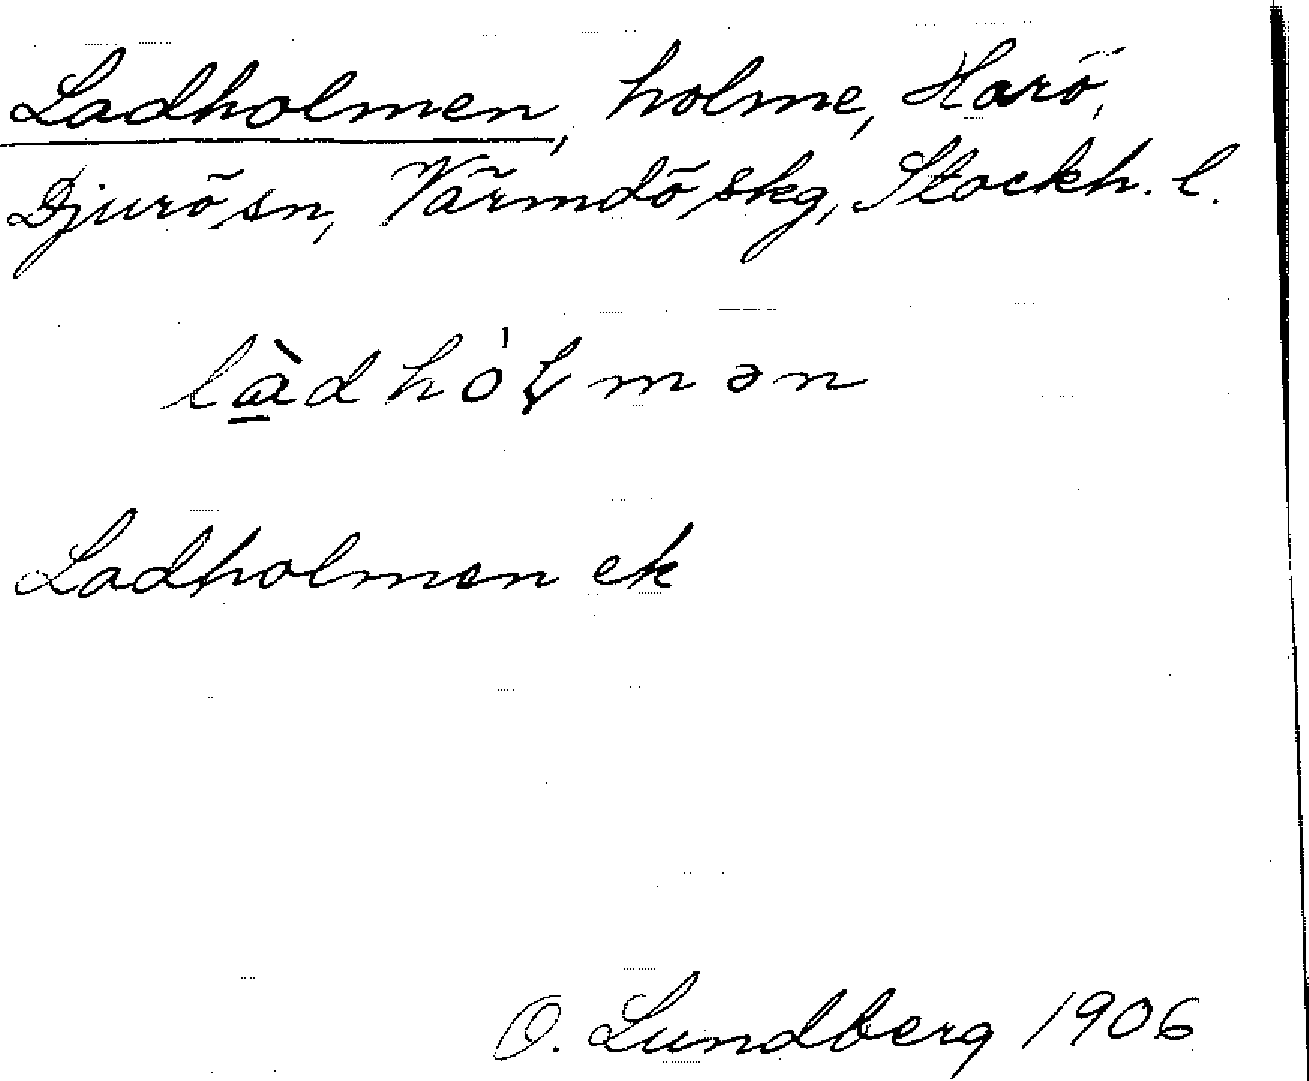 Ladholmen, holme, Harö,
Djurö sn, Värmdö skg, Stockh. l.
là̱dhò̍ɫmən
Ladholmen ek
O. Lundberg 1906